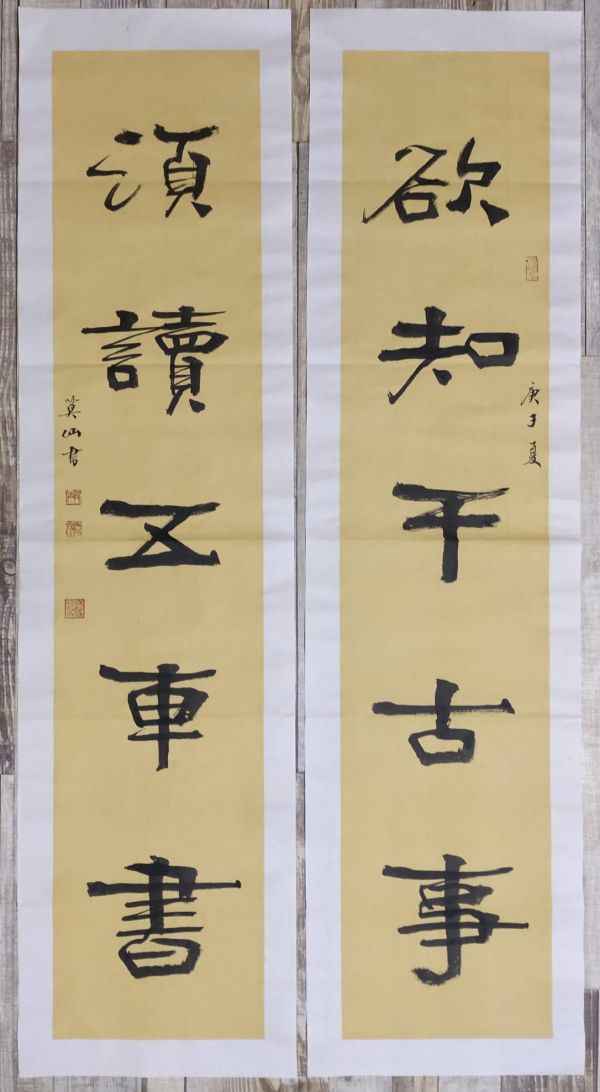 欲知千古事
庚子夏
須讀五車書
莫仙书